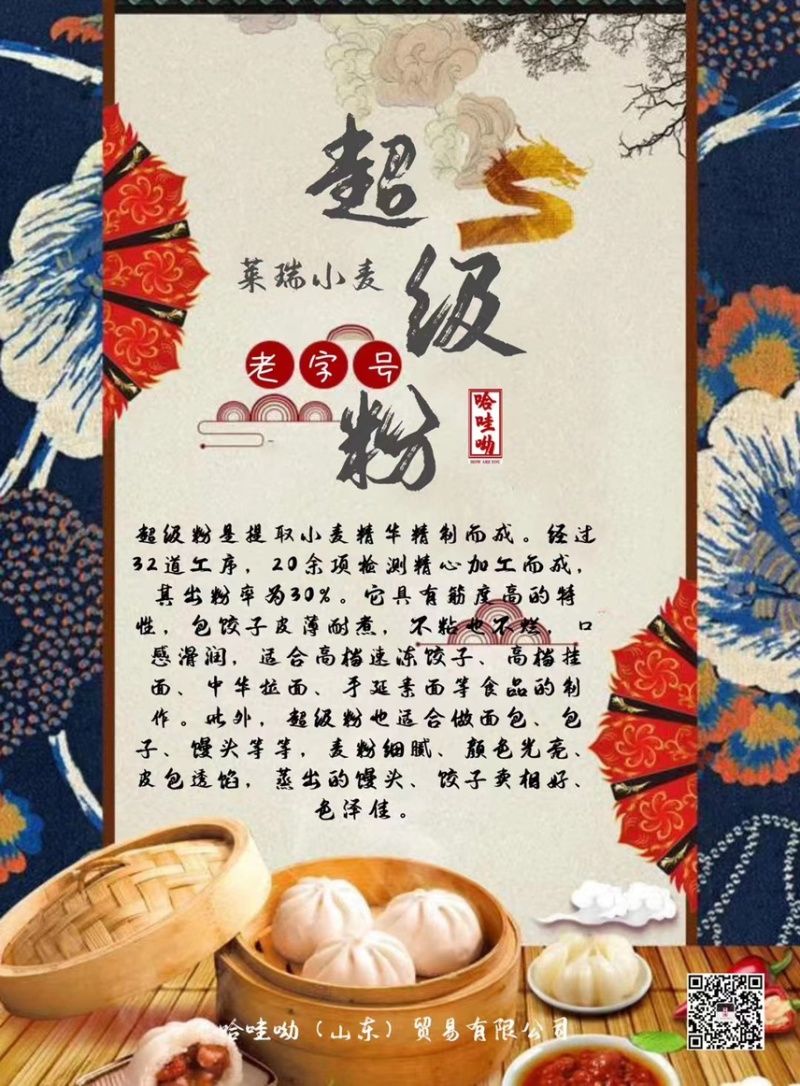 超级粉
莱瑞小麦
老字号
哈哇呦
HOW ARE YOU
超级粉是提取小麦精华精制而成。经过
32道工序，20余项检测精心加工而成，
其出粉率为30%。它具有筋度高的特
性，包饺子皮薄耐煮，不粘也不烂，口
感滑润，适合高档速冻饺子、高档挂
面、中华拉面、手延素面等食品的制
作。此外，超级粉也适合做面包、包
子、馒头等等，麦粉细腻、颜色光亮、
皮包透馅，蒸出的馒头、饺子卖相好、
色泽佳。
哈哇呦（山东）贸易有限公司